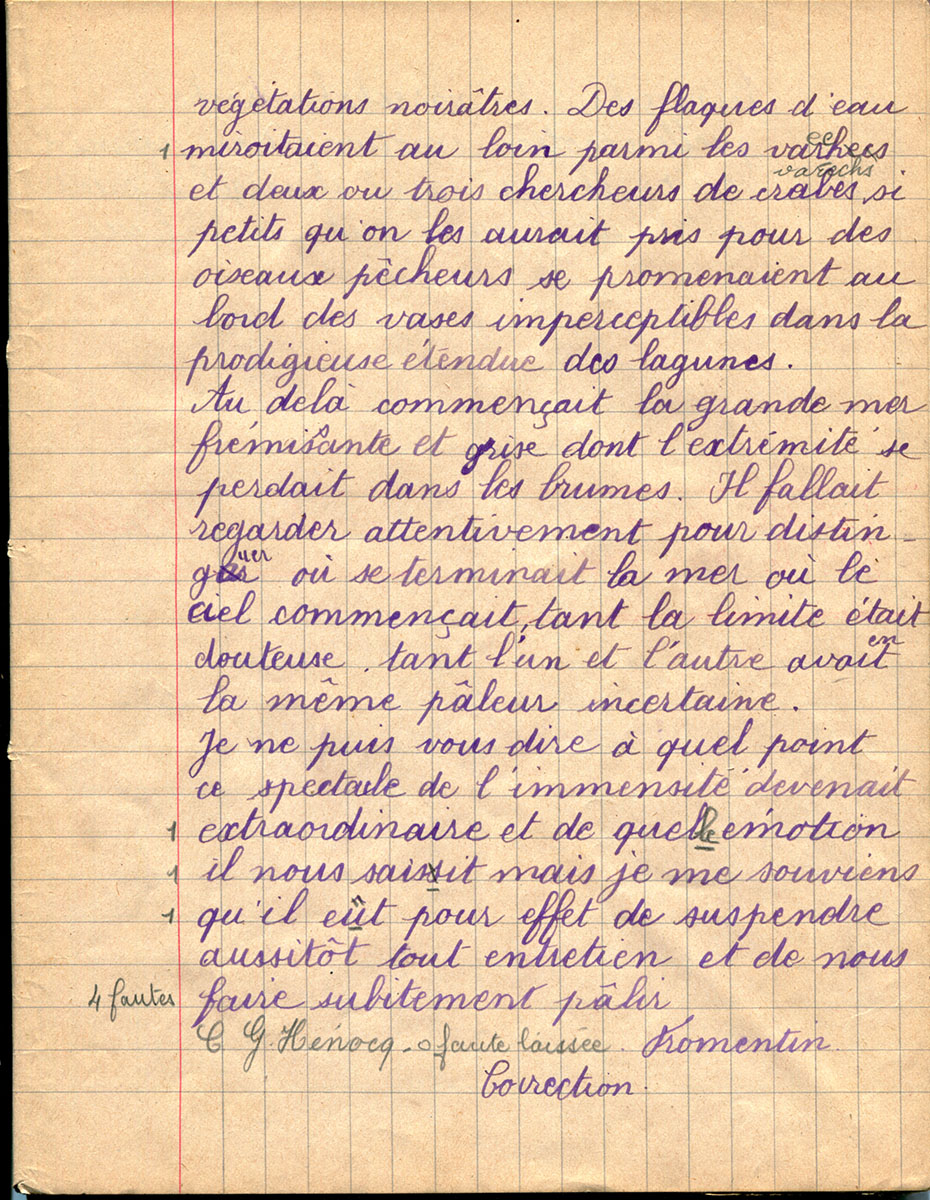 végétations noirâtres. Des flaques d'eau
1 miroitaient au loin parmi les varhees
varechs
et deux ou trois chercheurs de crabes, si
petits qu'on les aurait pris pour des
oiseaux pêcheurs se promenaient au
bord des vases imperceptibles dans la
prodigieuse étendue des lagunes.
Au delà commençait la grande mer
frémissante et grise dont l'extrémité se
perdait dans les brumes. Il fallait
regarder attentivement pour distin-
guer où se terminait la mer où le
ciel commençait, tant la limite était
douteuse, tant l'un et l'autre avaient
la même pâleur incertaine.
Je ne puis vous dire à quel point
ce spectacle de l'immensité devenait
1 extraordinaire et de quelle émotion
1 il nous saisit mais je me souviens
1 qu'il eût pour effet de suspendre
aussitôt tout entretien et de nous
4 fautes faire subitement pâlir
C G. Hénocq - 0 faute laissée. Fromentin
Correction.